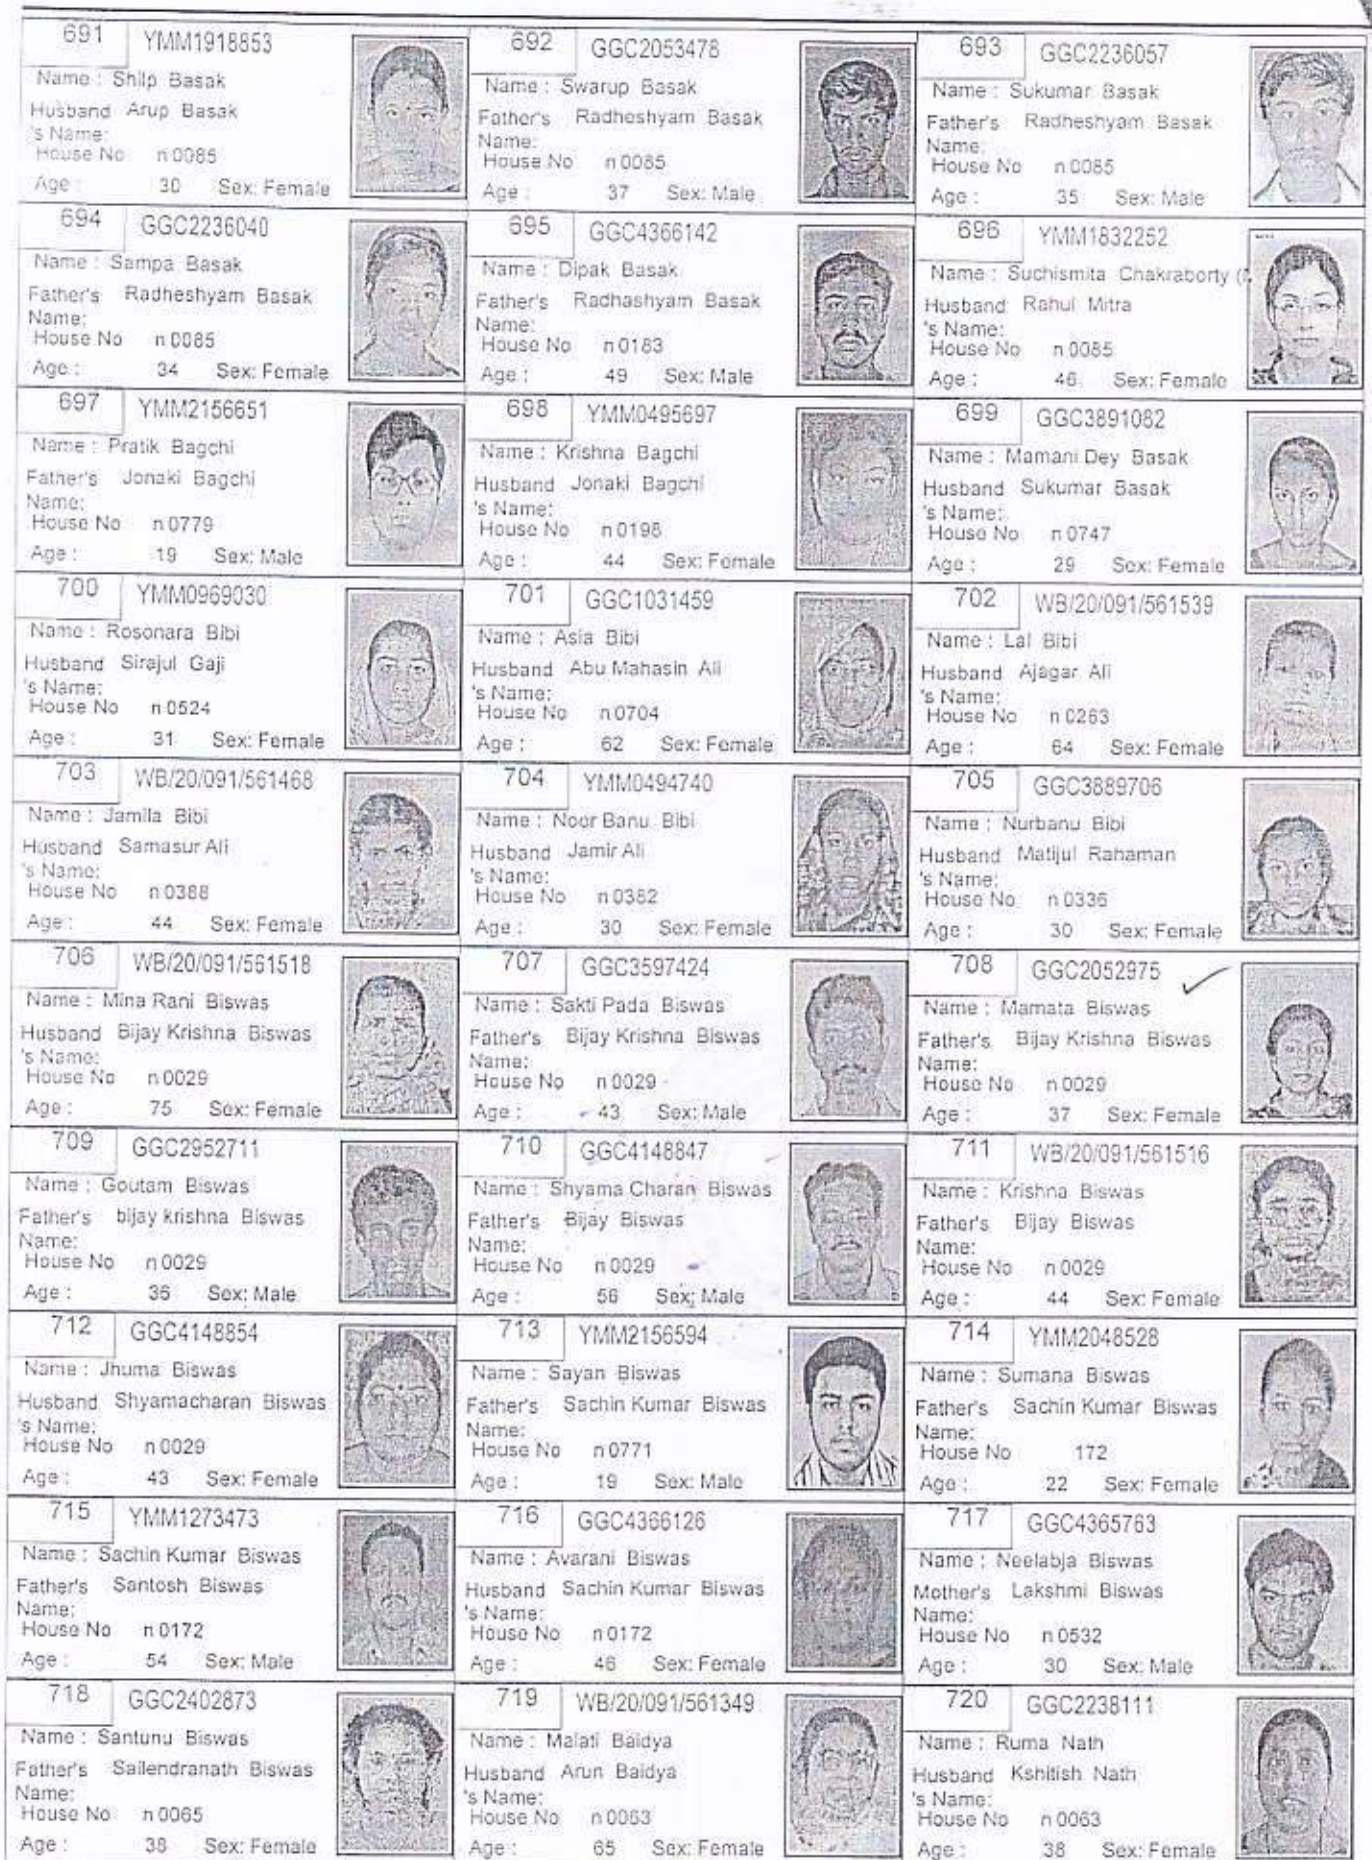 691 YMM1918853
Name : Shilp Basak
Husband Arup Basak
's Name:
House No n 0085
Age : 30 Sex: Female
692 GGC2053478
Name : Swarup Basak
Father's Radheshyam Basak
Name:
House No n 0085
Age : 37 Sex: Male
693 GGC2236057
Name : Sukumar Basak
Father's Radheshyam Basak
Name:
House No n 0085
Age : 35 Sex: Male
694 GGC2236040
Name : Sampa Basak
Father's Radheshyam Basak
Name:
House No n 0085
Age : 34 Sex: Female
695 GGC4366142
Name : Dipak Basak
Father's Radhashyam Basak
Name:
House No n 0183
Age : 49 Sex: Male
696 YMM1832252
Name : Suchismita Chakraborty (
Husband Rahul Mitra
's Name:
House No n 0085
Age : 46 Sex: Female
697 YMM2156651
Name : Pratik Bagchi
Father's Jonaki Bagchi
Name:
House No n 0779
Age : 19 Sex: Male
698 YMM0495697
Name : Krishna Bagchi
Husband Jonaki Bagchi
's Name:
House No n 0198
Age : 44 Sex: Female
699 GGC3891082
Name : Mamani Dey Basak
Husband Sukumar Basak
's Name:
House No n 0747
Age : 29 Sex: Female
700 YMM0969030
Name : Rosonara Bibi
Husband Sirajul Gaji
's Name:
House No n 0524
Age : 31 Sex: Female
701 GGC1031459
Name : Asia Bibi
Husband Abu Mahasin Ali
's Name:
House No n 0704
Age : 62 Sex: Female
702 WB/20/091/561539
Name : Lal Bibi
Husband Ajagar Ali
's Name:
House No n 0263
Age : 64 Sex: Female
703 WB/20/091/561468
Name : Jamila Bibi
Husband Samasur Ali
's Name:
House No n 0388
Age : 44 Sex: Female
704 YMM0494740
Name : Noor Banu Bibi
Husband Jamir Ali
's Name:
House No n 0382
Age : 30 Sex: Female
705 GGC3889706
Name : Nurbanu Bibi
Husband Matijul Rahaman
's Name:
House No n 0336
Age : 30 Sex: Female
706 WB/20/091/561518
Name : Mina Rani Biswas
Husband Bijay Krishna Biswas
's Name:
House No n 0029
Age : 75 Sex: Female
707 GGC3597424
Name : Sakti Pada Biswas
Father's Bijay Krishna Biswas
Name:
House No n 0029
Age : 43 Sex: Male
708 GGC2052975
Name : Mamata Biswas
Father's Bijay Krishna Biswas
Name:
House No n 0029
Age : 37 Sex: Female
709 GGC2952711
Name : Goutam Biswas
Father's bijay krishna Biswas
Name:
House No n 0029
Age : 36 Sex: Male
710 GGC4148847
Name : Shyama Charan Biswas
Father's Bijay Biswas
Name:
House No n 0029
Age : 56 Sex: Male
711 WB/20/091/561516
Name : Krishna Biswas
Father's Bijay Biswas
Name:
House No n 0029
Age : 44 Sex: Female
712 GGC4148854
Name : Jhuma Biswas
Husband Shyamacharan Biswas
's Name:
House No n 0029
Age : 43 Sex: Female
713 YMM2156594
Name : Sayan Biswas
Father's Sachin Kumar Biswas
Name:
House No n 0771
Age : 19 Sex: Male
714 YMM2048528
Name : Sumana Biswas
Father's Sachin Kumar Biswas
Name:
House No 172
Age : 22 Sex: Female
715 YMM1273473
Name : Sachin Kumar Biswas
Father's Santosh Biswas
Name:
House No n 0172
Age : 54 Sex: Male
716 GGC4366126
Name : Avarani Biswas
Husband Sachin Kumar Biswas
's Name:
House No n 0172
Age : 46 Sex: Female
717 GGC4365763
Name : Neelabja Biswas
Mother's Lakshmi Biswas
Name:
House No n 0532
Age : 30 Sex: Male
718 GGC2402873
Name : Santunu Biswas
Father's Sailendranath Biswas
Name:
House No n 0065
Age : 38 Sex: Female
719 WB/20/091/561349
Name : Malati Baidya
Husband Arun Baidya
's Name:
House No n 0063
Age : 65 Sex: Female
720 GGC2238111
Name : Ruma Nath
Husband Kshitish Nath
's Name:
House No n 0063
Age : 38 Sex: Female